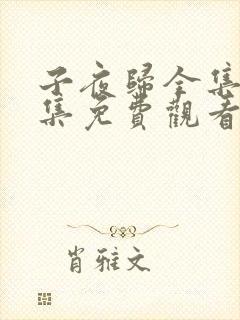 子夜歸全集
集免費觀看
肖雅文